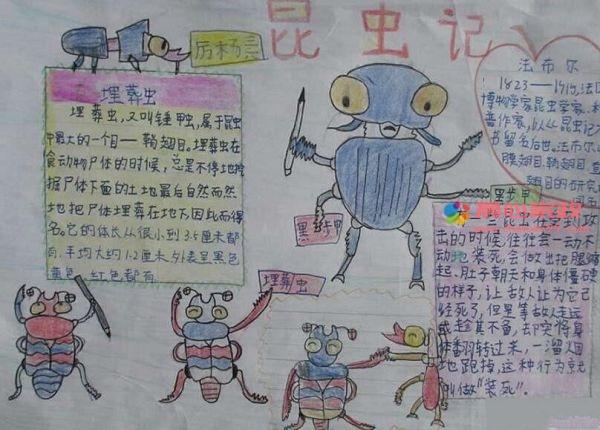 昆虫记
厉杨言
埋葬虫
埋葬虫,又叫锤甲虫,属于昆虫
中最大的一个目——鞘翅目。埋葬虫在
食动物尸体的时候,总是不停地挖
掘尸体下面的土地最后自然而然
地把尸体埋葬在地下因此而得
名。它的体长从很小到3.5厘米都
有,平均大约1.2厘米外表呈黑色
黄色,红色都有
法布尔
1823—1915,法国
博物学家昆虫学家.
普作家,以《昆虫记》
书留名后世。法布尔
膜翅目,鞘翅目,直
翅目的研究
黑步甲
黑步甲
昆虫在受到攻
击的时候,往往会一动不
动地装死,会做出把腿蜷
起、肚子朝天和身体僵硬
的样子,让敌人认为它已
经死了,但是等敌人走远
或趁其不备,却突将身
体翻转过来,一溜烟
地跑掉,这种行为就
叫做“装死”.
埋葬虫